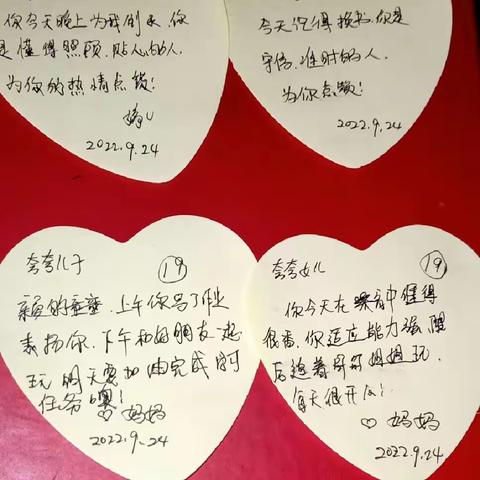 你今天晚上为我倒水,你
是懂得照顾,贴心的人,
为你的热情点赞!
2022.9.24
今天记得换书,你是
守信,准时的人.
为你点赞!
2022.9.24
夸夸儿子 19
亲爱的 上午你写了作业
表扬你,下午和好朋友一起
玩 明天要加油完成 的
任务噢!
♡妈妈
2022.9.24
夸夸女儿 19
你今天在 中睡得
很香,你适应能力强,
后追着哥哥姐姐玩,
每天很开心!
♡ 妈妈
2022.9.24